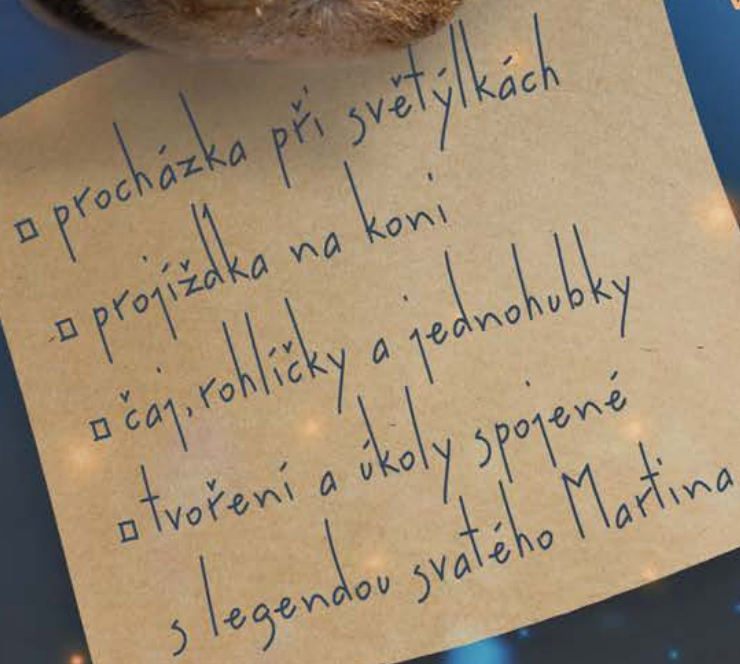 ▫ procházka při světýlkách
▫ projížďka na koni
▫ čaj, rohlíčky a jednohubky
▫ tvoření a úkoly spojené
s legendou svatého Martina